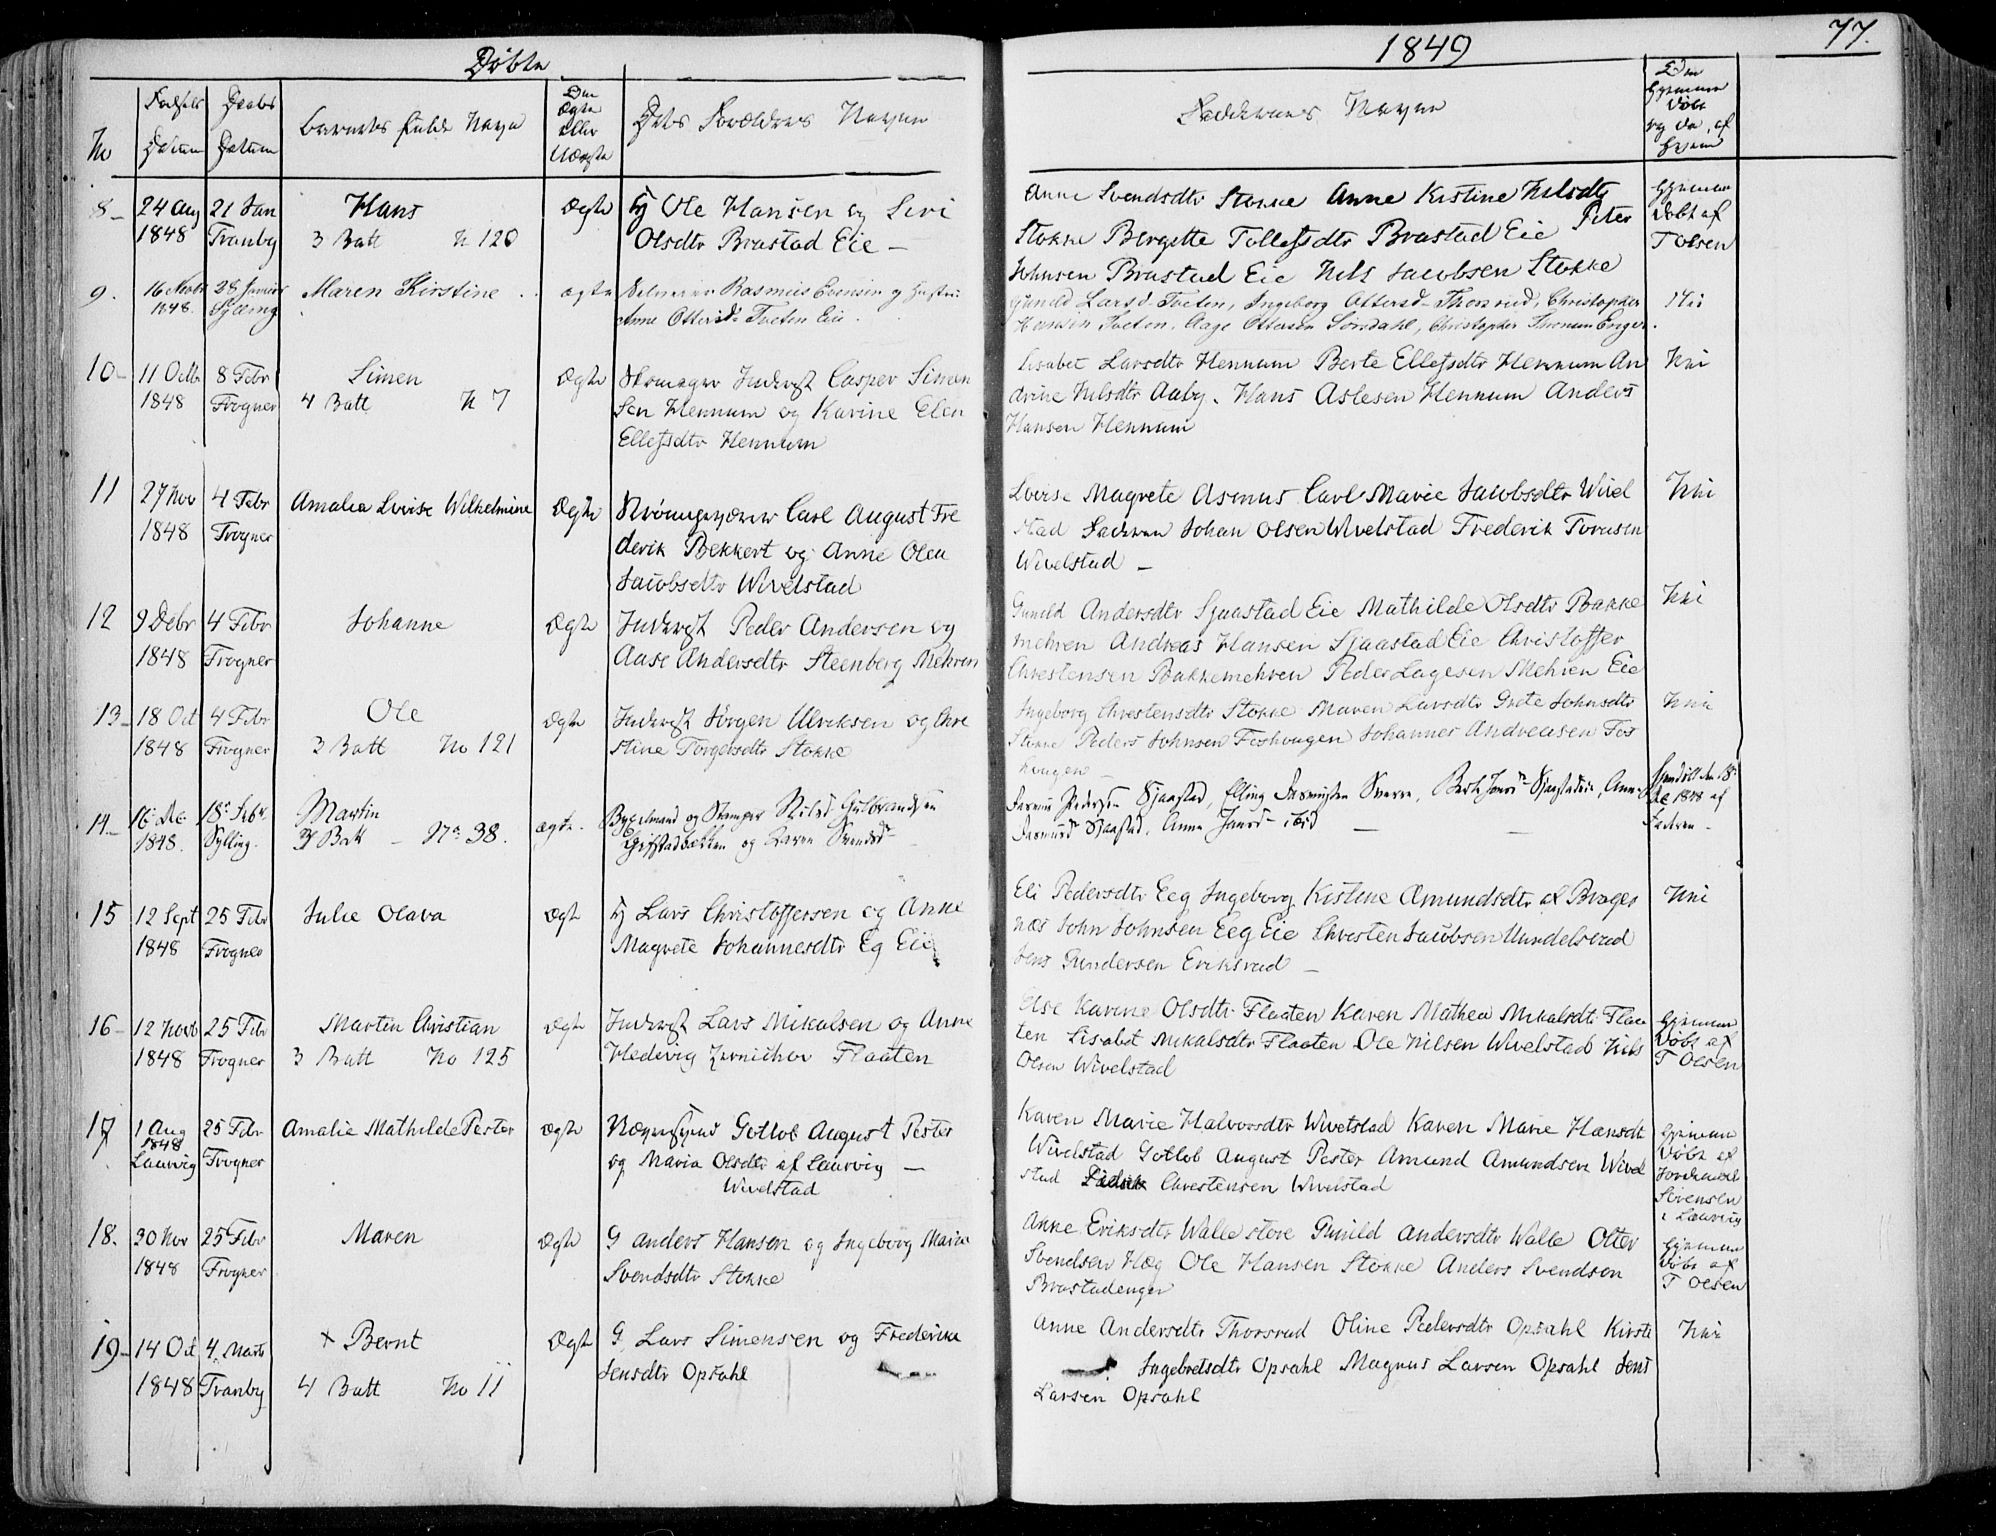 Døbte
1849
77.
No
Fødsels Datum
Daabs Datum
Barnets fulde Navn
Om Ægte eller Uægte
Dets Forældres Navne
Faddernes Navne
Om hjemmedøbt og da, af Hvem
8-
24 Aug 1848
21 Jan Tranby
Hans
3 Batt N 120
Ægte
Hj Ole Hansen og Siri
Olsdtr Brastad Eie -
Anne Svendsdtr Stokke Anne Kistine Nilsdtr
Stokke Birgette Tollefsdtr Brastad Eie Peter
Johnsen Brastad Eie Nils Jacobsen Stokke
Hjemmedøbt af T Olsen
9.
16 Novbr 1848.
28 Januar Sylling
Maren Kirstine
ægte
Rasmus Evensen og Hustru
Anne Ottersd. Tveten Eie.
Gunild Larsd. Tveten, Ingeborg Ottersd. Thorsrud, Christopher
Hansen Tveten, Aage Ottersen Søndahl, Christopher Enger.
Nei
10-
11 Octbr 1848
8 Febr Frogner
Simen
4 Batt N 7
Ægte
Skomager Inderst Casper Simen
sen Hennum og Karine Elen
Ellefsdtr Hennum
Lisabet Larsdtr Hennum Berte Ellefsdtr Hennum An
drine Nilsdtr Aaby. Hans Aslesen Hennum Anders
Hansen Hennum
Nei
11
27 Nov 1848
4 Febr Frogner
Amalia Lovise Wilhelmine
Ægte
Carl August Fre
derik Bekkert og Anne Olea
Jacobsdtr Wivelstad
Lovise Magrete Asmus Carl Marie Jacobsdtr Wivel
stad Faderen Johan Olsen Wivelstad Frederik
Wivelstad -
Nei
12
9 Debr 1848
4 Febr Frogner
Johanne
Ægte
Inderst Peder Andersen og
Aase Andersdtr Steenberg Mehren
Gunild Andersdtr Sjaastad Eie Mathilde Olsdtr Bakke
mehren Andreas Hansen Sjaastad Eie Christoffer
Chrestensen Bakkemehren Peder Lagesen Mehren Eie
Nei
13-
18 Oct 1848
4 Febr Frogner
Ole
3 Batt No 121
Ægte
Inderst Jørgen Ulriksen og Chre
stine Torgersdtr Stokke
Ingeborg Chrestensdtr Stokke Maren Larsdtr Grete Johnsdtr
Stokke Peders Johnsen Foshougen Johannes Andreasen Fos
hougen -
Nei
14-
16 De 1848.
18 Febr. Sylling.
Martin
3 Batt - No 38.
ægte.
Nils Gulbrandsen
Gifstadbakken og Karen Svendsd -
Pedersen Sjaastad, Elling Rasmussen
Sjaastad, Anne
Hjemdøbt den 18 De 1848 af Faderen -
15
12 Sept 1848
25 Febr Frogner
Julie Olava
Ægte
Hj Lars Christoffersen og Anne
Magrete Johannesdtr Eg Eie
Eli Pedersdtr Eeg Ingeborg Kistine Amundsdtr af Brages
næs John Johnsen Eeg Eie Chresten Jacobsen
Jens Gundersen Eriksrud -
Nei
16-
12 Novb 1848
25 Febr Frogner
Martin Christian
3 Batt No 125
Ægte
Inderst Lars Mikalsen og Anne
Hedevig Flaaten
Else Karine Olsdtr Flaaten Karen Mathea Mikalsdtr Flaa
ten Lisabet Mikalsdtr Flaaten Ole Nilsen Wivelstad Nils
Olsen Wivelstad
Hjemmedøbt af T Olsen
17
1 Aug 1848 Laurvig
25 Febr Frogner
Amalie Mathilde Pester
Ægte
Gotlob August Pester
og Maria Olsdtr af Laurvig -
Wivelstad
Karen Marie Halvorsdtr Wivelstad Karen Marie Hansdtr
Wivelstad Gotlob August Pester Amund Amundsen Wivel
stad Chrestensen Wivelstad
Hjemmedøbt af Jordemoder Sørensen i Laurvig
18.
30 Nov 1848
25 Febr Frogner
Maren
Ægte
G Anders Hansen og Ingeborg Maria
Svendsdtr Stokke
Anne Eriksdtr Walle store Gunild Andersdtr Walle Otter
Svendsen Hæg Ole Hansen Stokke Anders Svendsen
Brastadenger
Hjemmedøbt af T Olsen
19-
14 Oct 1848
4 Marts Tranby
+ Bernt
4 Batt No 11
Ægte
G. Lars Simensen og Frederikke
Jensdtr Opsahl
Anne Andersdtr Thorsrud Oline Pedersdtr Opsahl Kirsti
Ingebretsdtr Opsahl Magnus Larsen Opsahl Jens
Larsen Opsahl
Nei